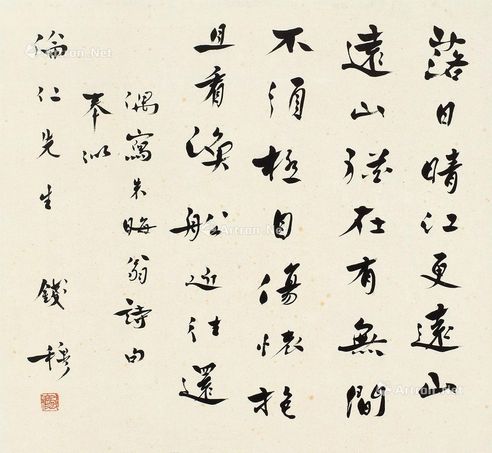 落日晴江更遠山
遠山猶在有無間
不須極目傷懷抱
且看漁船近往還
偶寫朱晦翁詩句
奉似
仁先生 錢穆
Artron.Net